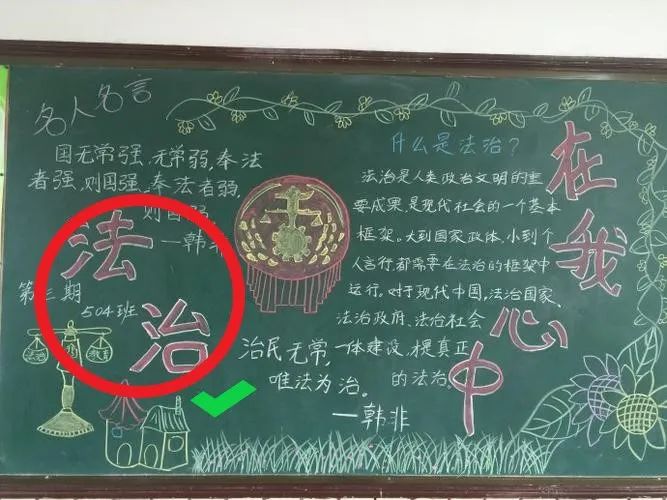 名人名言
国无常强,无常弱,奉法
者强,则国强,奉法者弱,
则国弱。
—韩非
法治
第三期
504班
法治
教育
什么是法治?
法治是人类政治文明的重
要成果,是现代社会的一个基本
框架。大到国家政体,小到个
人言行,都需要在法治的框架中
运行。对于现代中国,法治国家、
法治政府、法治社会
一体建设,才是真正
的法治。
治民无常,
唯法为治。
—韩非
在我心中